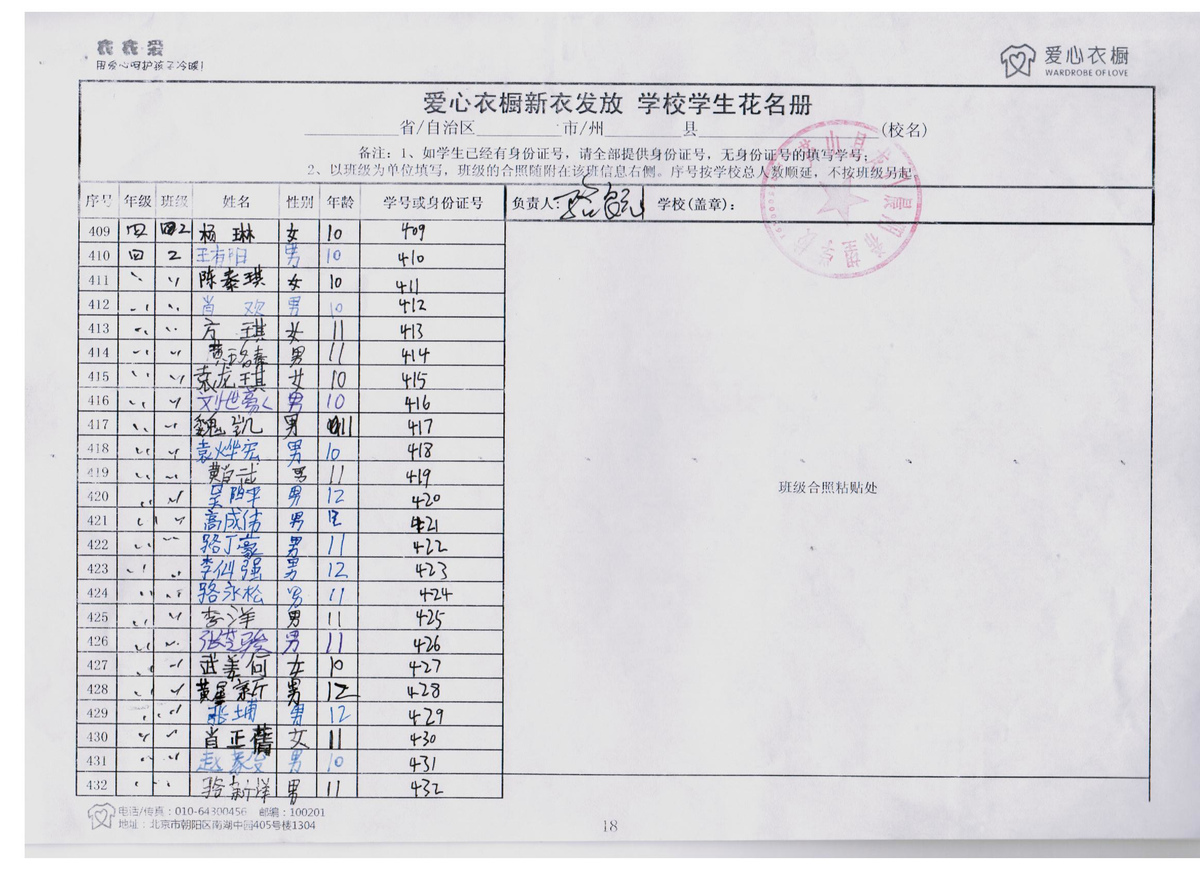 衣衣爱
用爱心呵护孩子冷暖!
爱心衣橱
WARDROBE OF LOVE
爱心衣橱新衣发放 学校学生花名册
省/自治区 市/州 县 (校名)
备注：1、如学生已经有身份证号，请全部提供身份证号，无身份证号的填写学号；
2、以班级为单位填写，班级的合照随附在该班信息右侧。序号按学校总人数顺延，不按班级另起。
序号 年级 班级 姓名 性别 年龄 学号或身份证号 负责人: 学校(盖章):
409 四 四2 杨琳 女 10 409
410 四 2 王有阳 男 10 410
411 〃 〃 陈泰琪 女 10 411
412 〃 〃 肖欢 男 10 412
413 〃 〃 方琪 女 11 413
414 〃 〃 男 11 414
415 〃 〃 袁龙琪 女 10 415
416 〃 〃 男 10 416
417 〃 〃 魏凯 男 11 417
418 〃 〃 袁烨宏 男 10 418
419 〃 〃 男 11 419
420 〃 〃 吴阳平 男 12 420
421 〃 〃 高成伟 男 12 421
422 〃 〃 路丁豪 男 11 422
423 〃 〃 男 12 423
424 〃 〃 路永松 男 11 424
425 〃 〃 李洋 男 11 425
426 〃 〃 张芝骏 男 11 426
427 〃 〃 武美何 女 10 427
428 〃 〃 男 12 428
429 〃 〃 男 12 429
430 〃 〃 肖正蕾 女 11 430
431 〃 〃 赵家俊 男 10 431
432 〃 〃 骆新洋 男 11 432
班级合照粘贴处
电话/传真：010-64300456 邮编：100201
地址：北京市朝阳区南湖中园405号楼1304
18